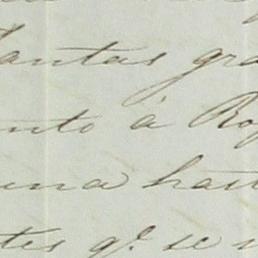 tantas gra
nto á Ro
una han
tes q.e se